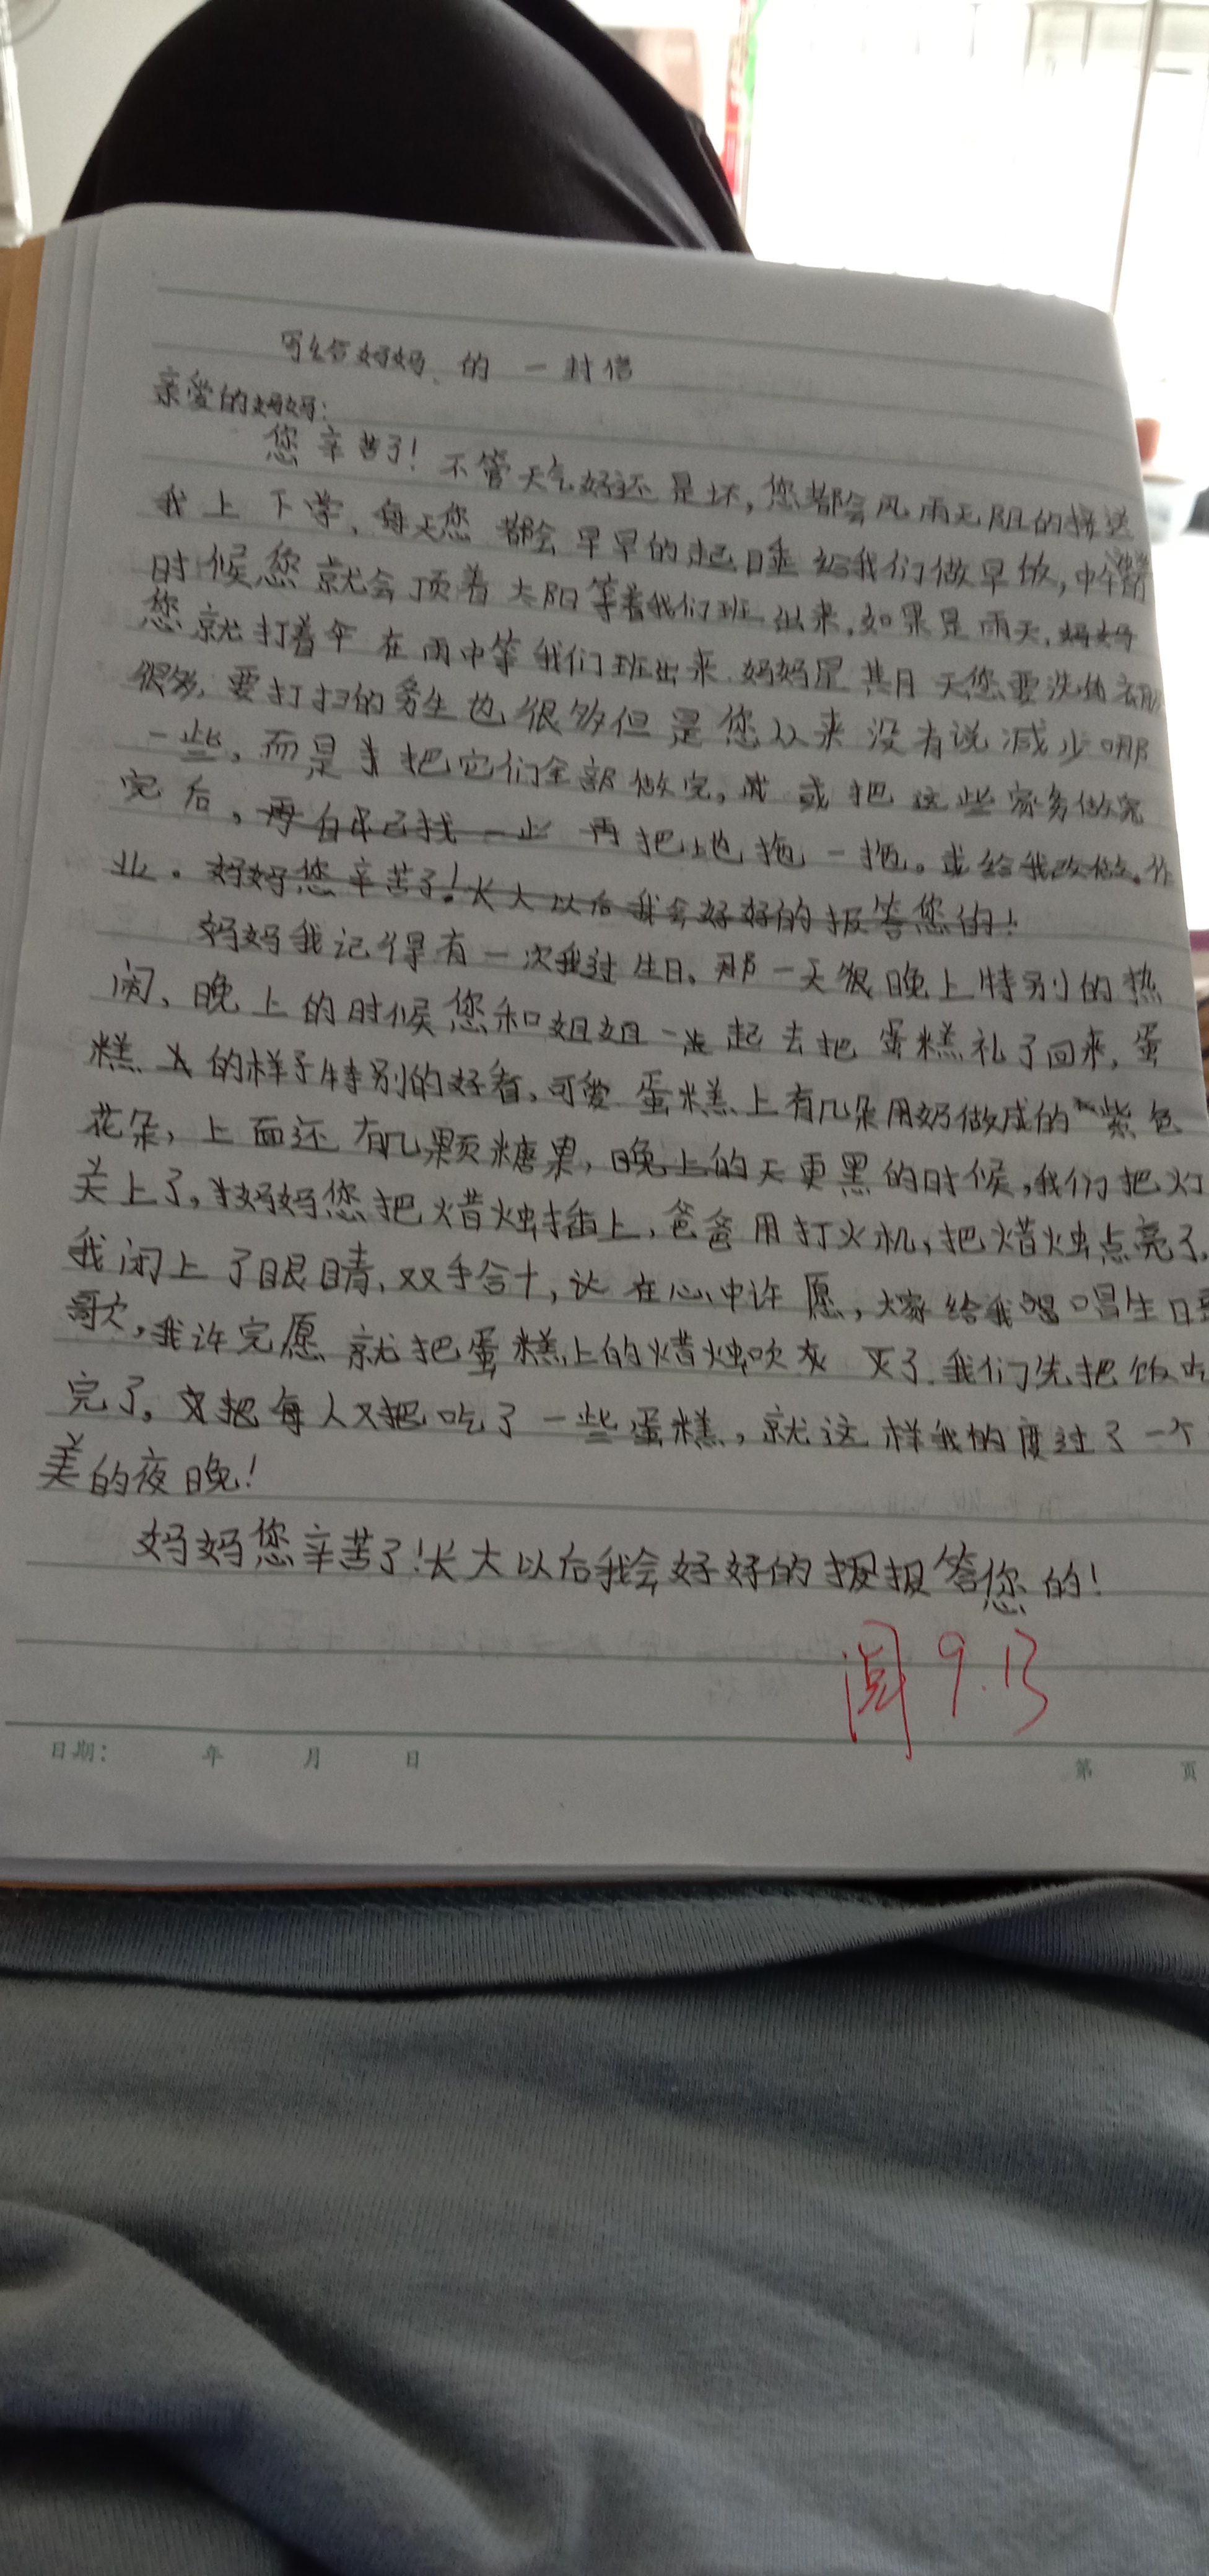 写给妈妈的一封信
亲爱的妈妈:
您辛苦了!不管天气好还是坏,您都会风雨无阻的接送
我上下学,每天您都会早早的起睡给我们做早饭,中午的
时候您就会顶着太阳等着我们班出来,如果是雨天,妈妈
您就打着伞在雨中等我们班出来.妈妈星其月天您要洗的衣服
很多,要打扫的务生也很多但是您从来没有说减少哪
一些,而是把它们全部做完,或把这些家务做完
完后,再把地拖一拖。或给我改做。作
业。妈妈您辛苦了!长大以后我会好好的报答您的!
妈妈我记得有一次我过生日,那一天晚上特别的热
闹、晚上的时候您和姐姐一起去把蛋糕礼了回来,蛋
糕的样子特别的好看,可爱蛋糕上有几朵用奶做成的紫色
花朵,上面还有几颗糖果,晚上的天更黑的时候,我们把灯
关上了,妈妈您把焟烛插上,爸爸用打火机,把焟烛点亮了,
我闭上了眼睛,双手合十,在心中许愿,大家给我唱生日
歌,我许完愿就把蛋糕上的焟烛吹灭了.我们先把饭吃
完了,每人又把吃了一些蛋糕,就这样我的度过了一个
美的夜晚!
妈妈您辛苦了!长大以后我会好好的报答您的!
阅 9.13
日期: 年 月 日 第 页